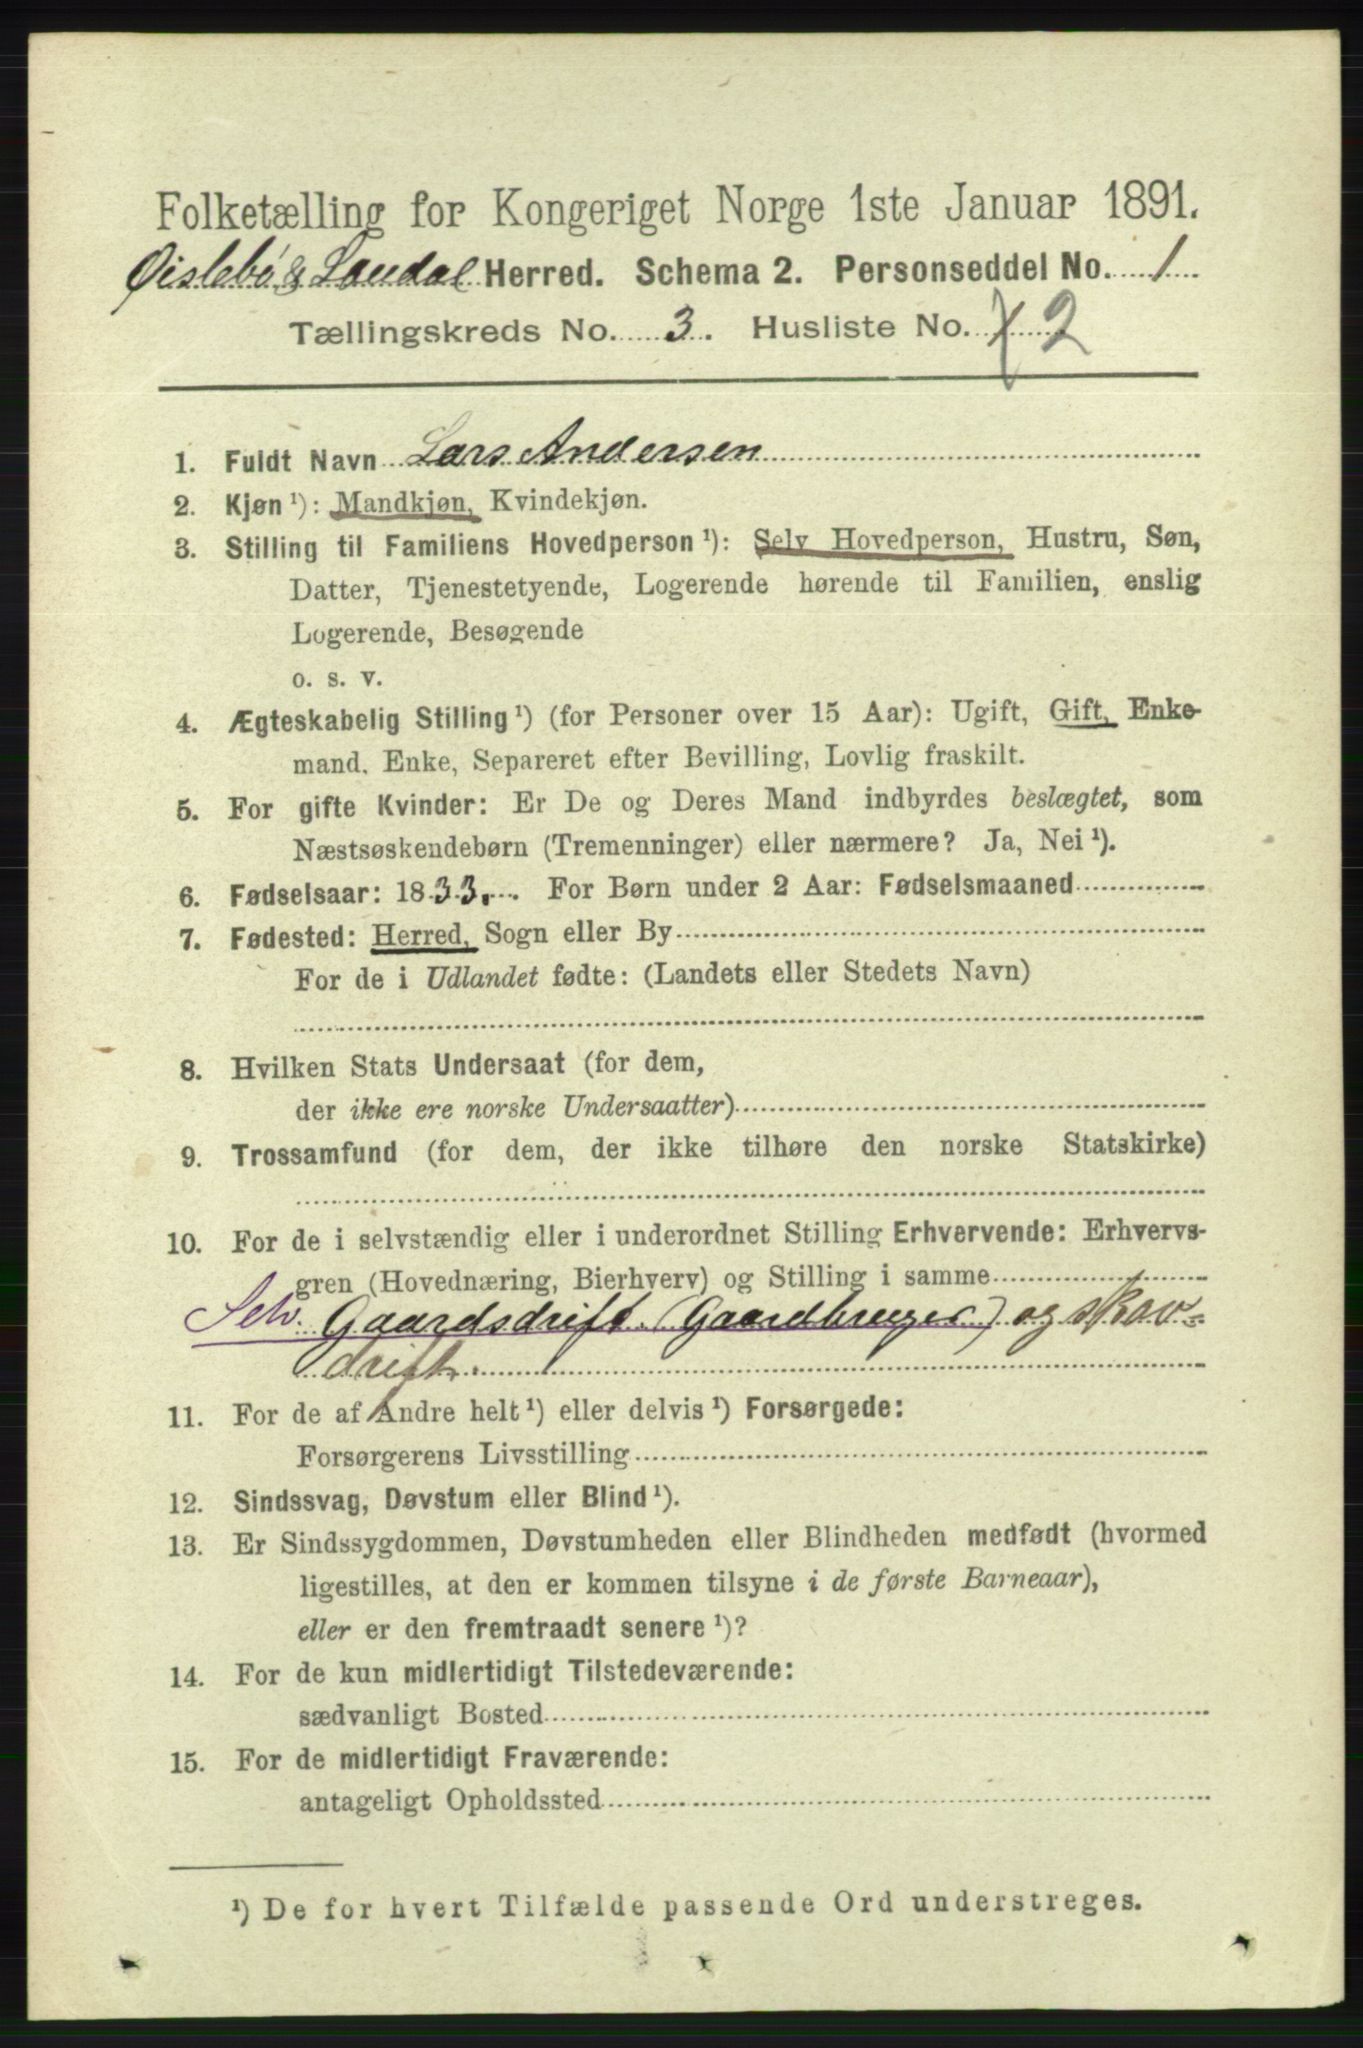 Folketælling for Kongeriget Norge 1ste Januar 1891.
Øislebø & Laudal Herred. Schema 2. Personseddel No. 1
Tællingskreds No. 3. Husliste No. 2
1. Fuldt Navn Lars Andersen
2. Kjøn ¹): Mandkjøn, Kvindekjøn.
3. Stilling til Familiens Hovedperson ¹): Selv Hovedperson, Hustru, Søn,
Datter, Tjenestetyende, Logerende hørende til Familien, enslig
Logerende, Besøgende
o. s. v.
4. Ægteskabelig Stilling ¹) (for Personer over 15 Aar): Ugift, Gift, Enke-
mand, Enke, Separeret efter Bevilling, Lovlig fraskilt.
5. For gifte Kvinder: Er De og Deres Mand indbyrdes beslægtet, som
Næstsøskendebørn (Tremenninger) eller nærmere? Ja, Nei ¹).
6. Fødselsaar: 1833. For Børn under 2 Aar: Fødselsmaaned
7. Fødested: Herred, Sogn eller By
For de i Udlandet fødte: (Landets eller Stedets Navn)
8. Hvilken Stats Undersaat (for dem,
der ikke ere norske Undersaatter)
9. Trossamfund (for dem, der ikke tilhøre den norske Statskirke)
10. For de i selvstændig eller i underordnet Stilling Erhvervende: Erhvervs-
gren (Hovednæring, Bierhverv) og Stilling i samme
Selv. Gaardsdrift (Gaardbruger) og skov=
drift.
11. For de af Andre helt ¹) eller delvis ¹) Forsørgede:
Forsørgerens Livsstilling
12. Sindssvag, Døvstum eller Blind ¹).
13. Er Sindssygdommen, Døvstumheden eller Blindheden medfødt (hvormed
ligestilles, at den er kommen tilsyne i de første Barneaar),
eller er den fremtraadt senere ¹)?
14. For de kun midlertidigt Tilstedeværende:
sædvanligt Bosted
15. For de midlertidigt Fraværende:
antageligt Opholdssted
¹) De for hvert Tilfælde passende Ord understreges.